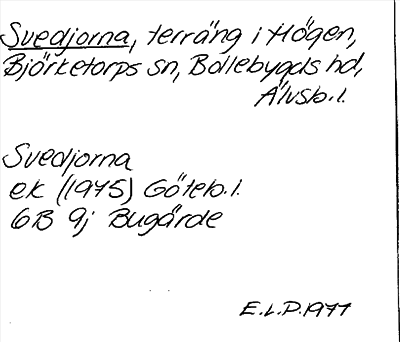 Svedjorna, terräng i Högen,
Björketorps sn, Bollebygds hd,
Älvsb. l.
Svedjorna
ek (1975) Göteb. l.
6B 9j Bugärde
E.L.P. 1977